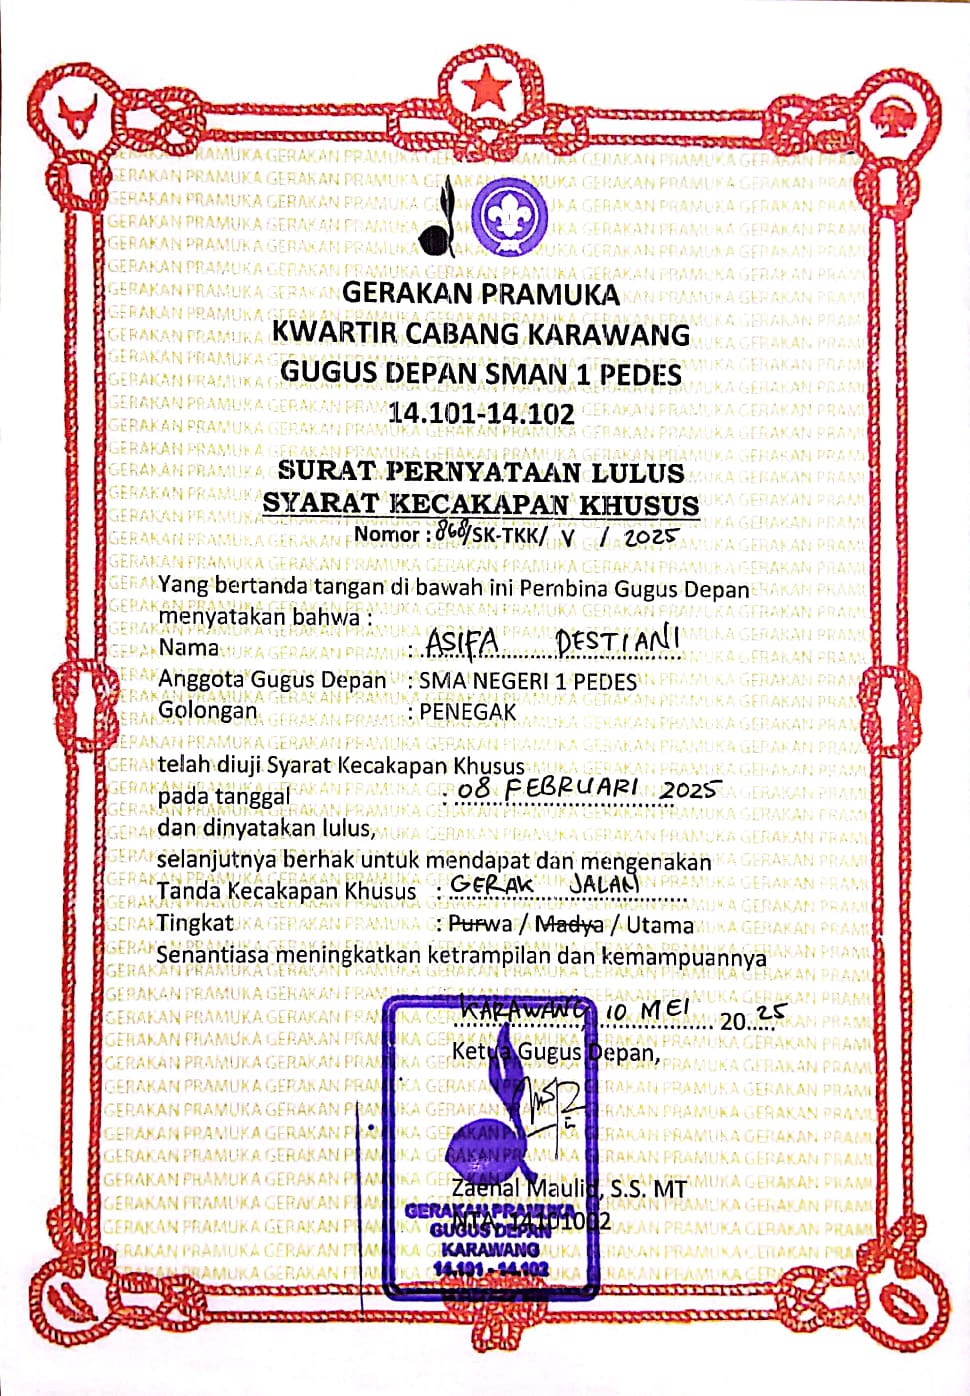 GERAKAN PRAMUKA
KWARTIR CABANG KARAWANG
GUGUS DEPAN SMAN 1 PEDES
14.101-14.102
SURAT PERNYATAAN LULUS
SYARAT KECAKAPAN KHUSUS
Nomor : 868/SK-TKK/ V / 2025
Yang bertanda tangan di bawah ini Pembina Gugus Depan
menyatakan bahwa :
Nama : ASIFA DESTIANI
Anggota Gugus Depan : SMA NEGERI 1 PEDES
Golongan : PENEGAK
telah diuji Syarat Kecakapan Khusus
pada tanggal : 08 FEBRUARI 2025
dan dinyatakan lulus,
selanjutnya berhak untuk mendapat dan mengenakan
Tanda Kecakapan Khusus : GERAK JALAN
Tingkat : Purwa / Madya / Utama
Senantiasa meningkatkan ketrampilan dan kemampuannya
KARAWANG, 10 MEI 2025
Ketua Gugus Depan,
Zaenal Maulid, S.S. MT
NTA 14101002
GERAKAN PRAMUKA
GUGUS DEPAN
KARAWANG
14.101 - 14.102